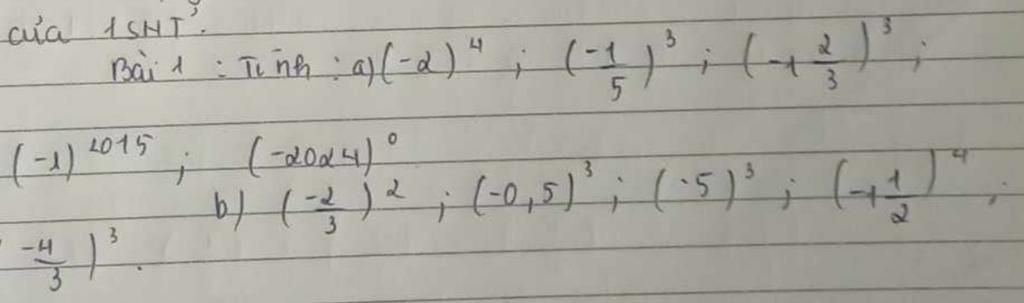 của 1 SNT.
Bài 1 : Tính : a) (-2)^4 ; (-1/5)^3 ; (-1 2/3)^3 ;
(-1)^2015 ; (-2024)^0
b) (-2/3)^2 ; (-0,5)^3 ; (-5)^3 ; (-1 1/2)^4 ;
-4/3)^3 .